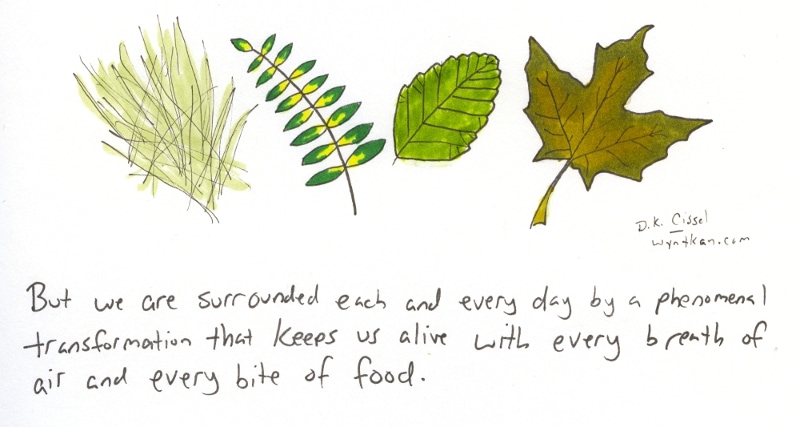 D.K. Cissel
wyntkan.com
But we are surrounded each and every day by a phenomenal
transformation that keeps us alive with every breath of
air and every bite of food.